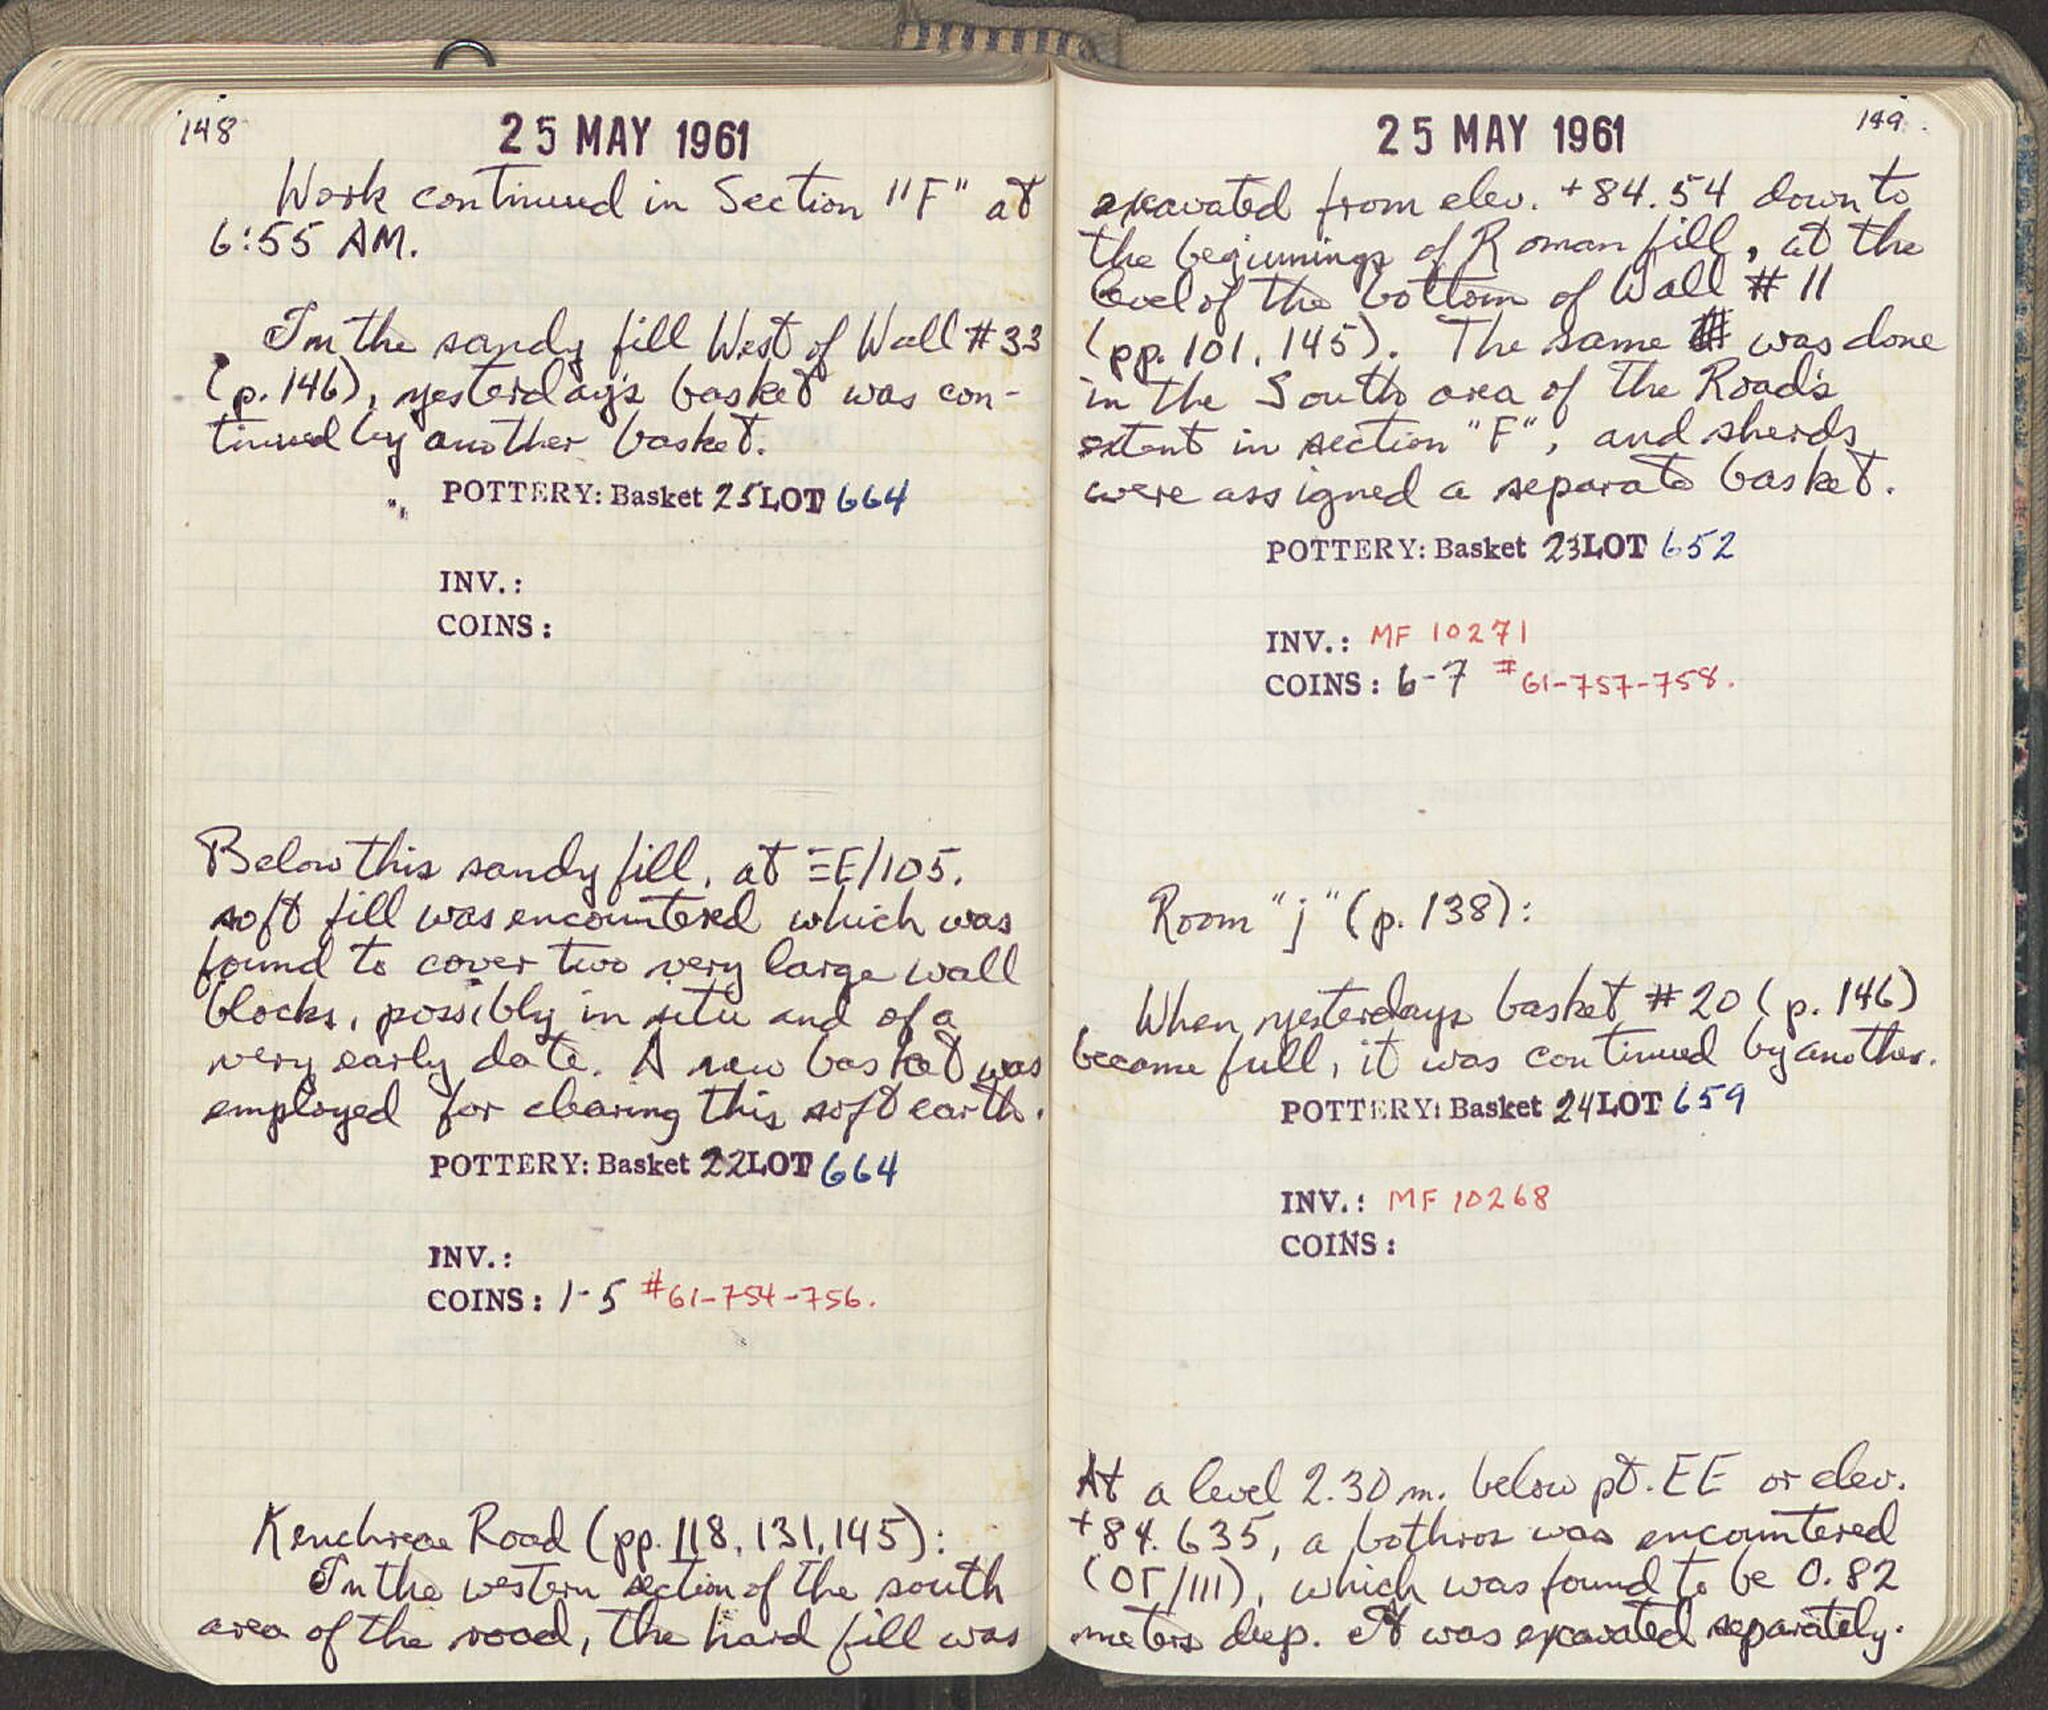 148
25 MAY 1961
Work continued in Section "F" at
6:55 AM.
In the sandy fill West of Wall #33
(p. 146), yesterday's basket was con-
tinued by another basket.
POTTERY: Basket 25 LOT 664
INV.:
COINS:
Below this sandy fill, at ΞE/105,
soft fill was encountered which was
found to cover two very large wall
blocks, possibly in situ and of a
very early date. A new basket was
employed for clearing this soft earth.
POTTERY: Basket 22 LOT 664
INV.:
COINS: 1-5 #61-754-756.
Kenchreae Road (pp. 118, 131, 145):
In the western section of the south
area of the road, the hard fill was
149
25 MAY 1961
excavated from elev. +84.54 down to
the beginnings of Roman fill, at the
level of the bottom of Wall #11
(pp. 101, 145). The same was done
in the South area of the Road's
extent in section "F", and sherds
were assigned a separate basket.
POTTERY: Basket 23 LOT 652
INV.: MF 10271
COINS: 6-7 #61-757-758.
Room "j" (p. 138):
When yesterdays basket #20 (p. 146)
became full, it was continued by another.
POTTERY: Basket 24 LOT 659
INV.: MF 10268
COINS:
At a level 2.30 m. below pt. EE or elev.
+84.635, a bothros was encountered
(OΓ/111), which was found to be 0.82
meters deep. It was excavated separately.